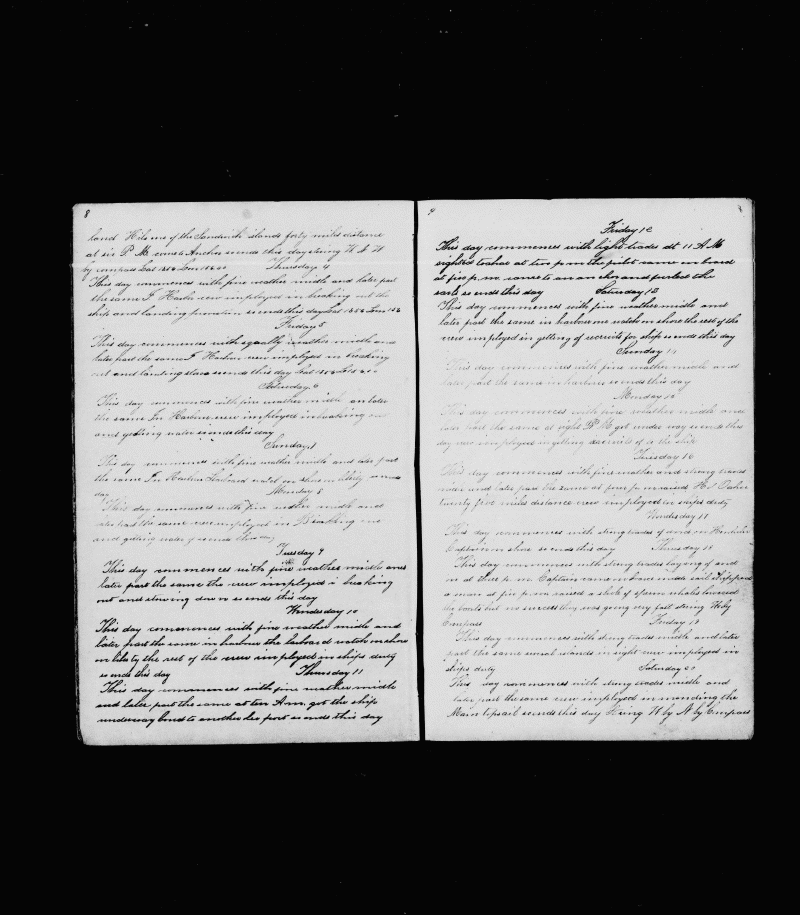 8
land Hilo one of the Sandwich islands forty miles distance
at six P M came to Anchor so ends this day string W N W
by compass Lat Lon
Thursday 4
This day commences with fine weather midle and later part
the same I Harbor crew imployed in breaking out the
ship and landing so ends this day Lat Lon
Friday 5
This day commences with squally weather midle and
later part the same I Harbor crew imployed in breaking
out and landing so ends this day Lat
Saturday 6
This day commences with fine weather midle an later
the same In Harbor crew imployed in breaking out
and getting water so ends this day
Sunday
This day commences with fine weather midle and later part
the same In Harbor Starbord watch on shore on liberty so ends
day
Monday 8
This day commences with fine wether midle and
later part the same crew imployed in Breaking out
and getting water so ends this day
Tuesday 9
This day commences with fine weather midle and
later part the same the crew imployed i breaking
out and stowing down so ends this day
Wendesday 10
This day commences with fine weather midle and
later part the same in harbor the larbard watch on shore
on liberty the rest of the crew imployed in ships duty
so ends this day
Thursday 11
This day commences with fine weather midle
and later part the same at ten A.m. got the ship
underway bond to another her port so ends this day
9
Friday 12
This day commences with light trades at 11 A M
sighted at two p m the pilot came on bord
at five p. m. came to an anchor and furled the
sails so ends this day
Saturday 13
This day commences with fine wather midle and
later part the same in harbor one watch on shore the rest of the
crew imployed in getting of recruits for ship so ends this day
Sunday 14
This day commences with fine weather midle and
later part the same in harbor so ends this day
Monday 15
This day commences with fine weather midle and
later part the same at eight P M got under way so ends this
day crew imployed in getting recruits of to the ship
Tuesday 16
This day commences with fine wather and strong trades
midle and later part the same at four p. m raised
twenty five miles distance crew imployed in ships duty
Wendesday 17
This day commences with strong trades of and on Honolulu
Captain on shore so ends this day
Thursday 18
This day commences with strong trades laying of and
on at four p. m. Captain came on bord made sail shipped
a man at five p. m raised a shole of sperm whales lowered
the boats but no success they was going very fast string W by
Compass
Friday 19
This day commences with strong trades midle and later
part the same seural islands in sight crew imployed in
ships duty
Saturday 20
This day commences with strong trades midle and
later part the same crew imployed in mending the
Main topsail so ends this day string W by N by Compass